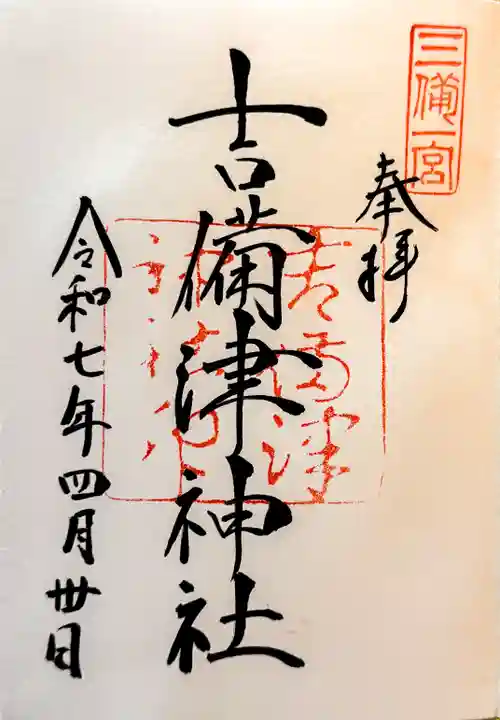 三備一宮
奉拝
吉備津神社
令和七年四月卅日